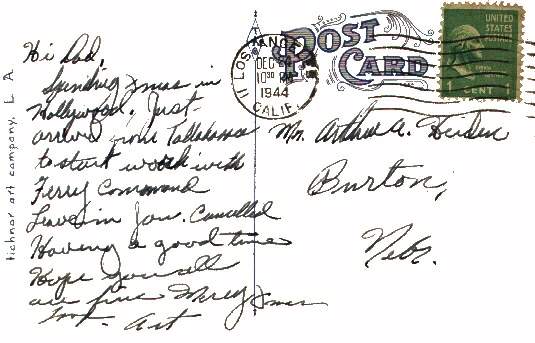 Hi Dad,
Spending Xmas in
Hollywood. Just
arrived from Tallahassee
to start work with
Ferry Command
Leave in Jan. Cancelled
Having a good time
Hope you all
are fine Merry Xmas
Art
Tichnor art company, L A
POST
CARD
LOS ANGELES
DEC
10 30 PM
1944
CALIF.
UNITED
STATES
POSTAGE
1 CENT 1
Mr. Arthur A.
Burton,
Nebr.